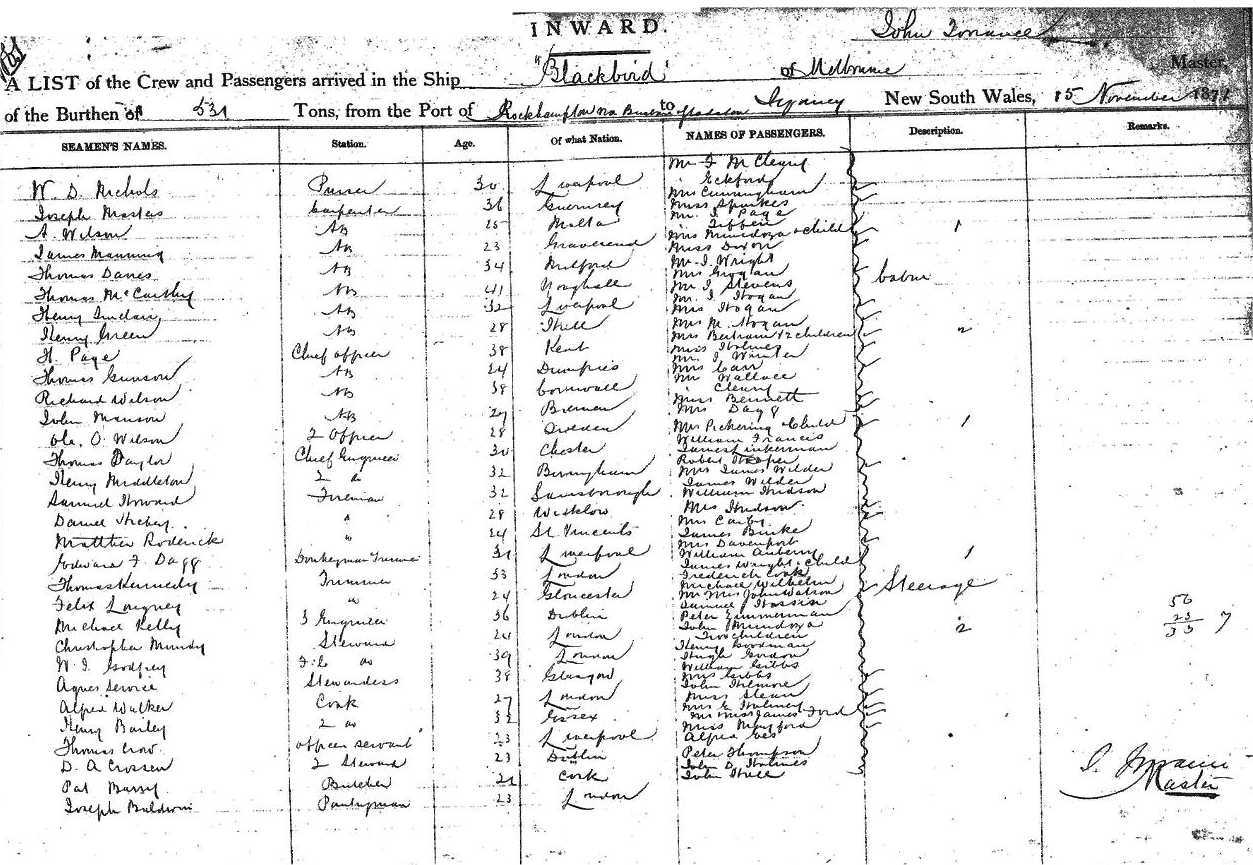 INWARD.
John Torrance
A LIST of the Crew and Passengers arrived in the Ship "Blackbird" of Melbourne Master,
of the Burthen of 531 Tons, from the Port of Rockhampton via to Sydney New South Wales, 15 November 187
SEAMEN'S NAMES. Station. Age. Of what Nation. NAMES OF PASSENGERS. Description. Remarks.
Mr J McCleary
W. D. Nichols Purser 30 Liverpool " Eckford
Joseph Masters Carpenter 36 Guernsey Mrs Cunningham
Miss Spinkes
A. Wilson AB 25 Malta Mr J. Page
" Tibben
James Manning AB 23 Gravesend Mrs Mendoza & Child 1
Miss Dixon
Thomas Davies AB 34 Milford Mr J. Wright
Mrs Grogan cabin
Thomas McCarthy AB 41 Youghall Mr J Stevens
Mr J. Hogan
Henry Sinclair AB 32 Liverpool Mrs Hogan
Henry Green AB 28 Hull Mrs M. Hogan
Mrs Bertram & 2 children 2
H. Page Chief officer 38 Kent Miss Holmes
Mr J Winter
Thomas Gunson AB 24 Dumfries Mrs Carr
Mr Wallace
Richard Wilson AB 38 Cornwall " Cleary
Miss Bennett
John Manson AB 27 Bremen Mrs Dagg
Ole. O. Wilson 2 Officer 28 Sweden Mrs Pickering & Child 1
William Francis
Thomas Taylor Chief Engineer 30 Chester James
Robert Hooper
Henry Middleton 2 do 32 Birmingham Mrs James Wilder
James Wilder
Samuel Howard Fireman 32 Gainsborough William Hudson
Daniel Hickey " 28 Wicklow Mrs Hudson
Mrs Carby
Matthew Roderick " 24 St. Vincents James Burke
Mrs Davenport
Edward J. Dagg Donkeyman Trimmer 31 Liverpool William Aubery 1
James Wright & Child
Thomas Kennedy Trimmer 33 London Frederick Cook
Michael Wilhelm Steerage
Felix Langney " 24 Gloucester Mr Mrs John Watson
Samuel
Michael Kelly 3 Engineer 36 Dublin Peter Zimmerman 56
John Mendoza 23
Christopher Mundy Steward 24 London Two children 2 33 7
Henry Goodman
W. J. Godfrey F.C. do 39 London Hugh Gordon
William Gibbs
Agnes Service Stewardess 38 Glasgow Mrs Gibbs
John Kilmore
Alfred Walker Cook 27 London Miss Stean
Mrs E Holmes
Henry Bailey 2 do 32 Essex Mr Miss James Ford
Miss Mayford
Thomas Crow officers servant 23 Liverpool Alfred
D. A Crossen 2 Steward 23 Dublin Peter Thompson
John D. Holmes
Pat Barry Butcher 21 Cork John Hill
Joseph Baldwin Pantryman 23 London
J. Torrance
Master